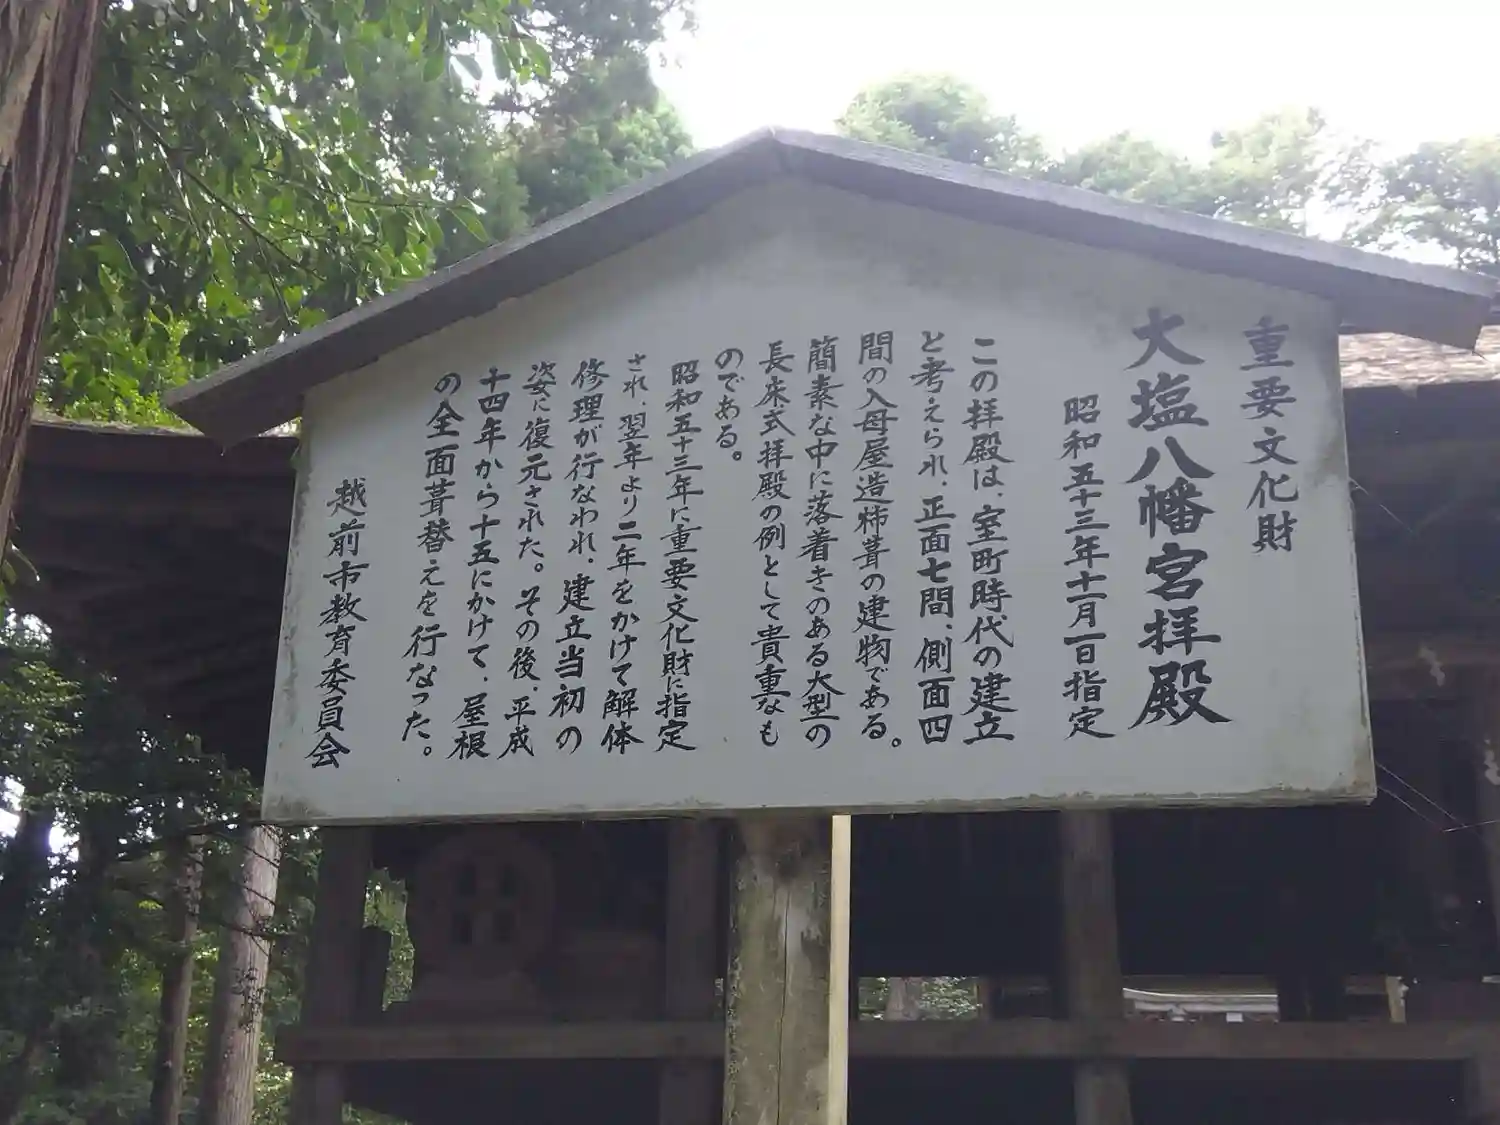 重要文化財
大塩八幡宮拝殿
昭和五十三年十一月一日指定
この拝殿は、室町時代の建立
と考えられ、正面七間、側面四
間の入母屋造杮葺の建物である。
簡素な中に落着きのある大型の
長床式拝殿の例として貴重なも
のである。
昭和五十三年に重要文化財に指定
され、翌年より二年をかけて解体
修理が行なわれ、建立当初の
姿に復元された。その後、平成
十四年から十五にかけて、屋根
の全面葺替えを行なった。
越前市教育委員会